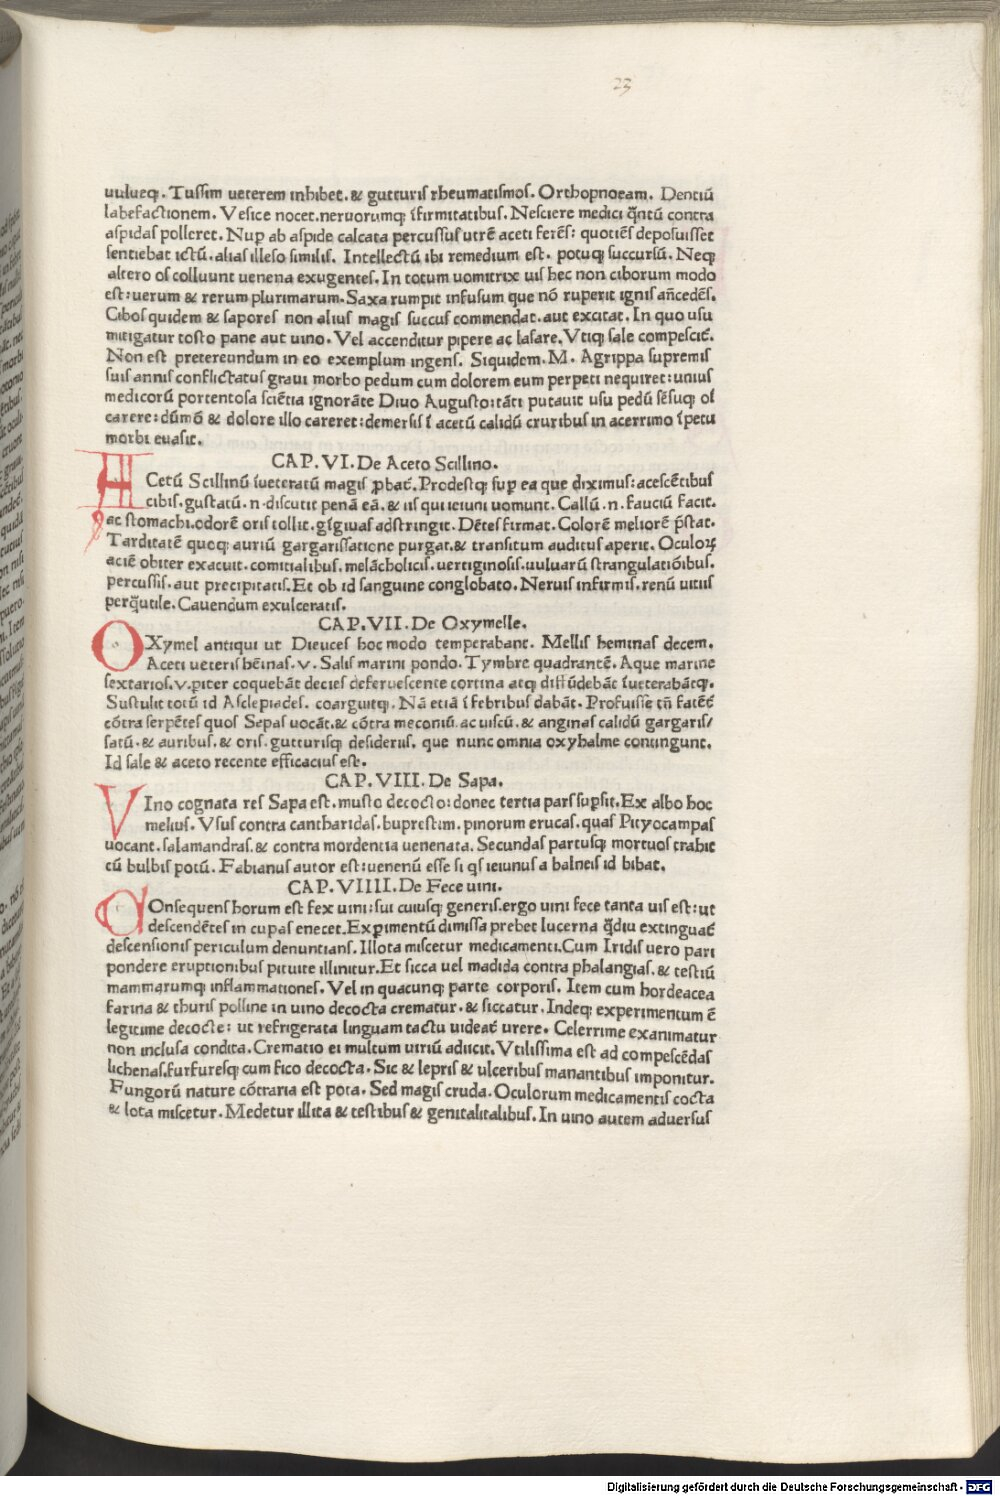 23
uulueq;. Tussim ueterem inhibet. & gutturis rheumatismos. Orthopnoeam. Dentiū
labefactionem. Vesice nocet. neruorumq; ĩfirmitatibus. Nesciere medici q̃ntũ contra
aspidas polleret. Nup̱ ab aspide calcata percussus utrẽ aceti ferẽs: quotiẽs deposuisset
sentiebat ictũ. alias illeso similis. Intellectũ ibi remedium est. potuq; succursũ. Neq;
altero os colluunt uenena exugentes. In totum uomitrix uis hec non ciborum modo
est: uerum & rerum plurimarum. Saxa rumpit infusum que nõ ruperit ignis añcedẽs.
Cibos quidem & sapores non alius magis succus commendat. aut excitat. In quo usu
mitigatur tosto pane aut uino. Vel accenditur pipere ac lasare. Vtiq; sale compescit̃.
Non est pretereundum in eo exemplum ingens. Siquidem. M. Agrippa supremis
suis annis conflictatus graui morbo pedum cum dolorem eum perpeti nequiret: unius
medicorũ portentosa sciẽtia ignorãte Diuo Augusto: tãti putauit usu pedũ sẽsuq; oĩ
carere: dũmõ & dolore illo careret: demersis ĩ acetũ calidũ cruribus in acerrimo ĩpetu
morbi euasit.
CAP. VI. De Aceto Scillino.
ACetũ Scillinũ ĩueteratũ magis ꝓbat̃. Prodestq; sup̱ ea que diximus: acescẽtibus
cibis. gustatũ. n. discutit penã eã. & iis qui ieiuni uomunt. Callũ. n. fauciũ facit.
ac stomachi. odorẽ oris tollit. gĩgiuas adstringit. Dẽtes firmat. Colorẽ meliorẽ p̃stat.
Tarditatẽ quoq; auriũ gargarissatione purgat. & transitum auditus aperit. Oculoꝝ
aciẽ obiter exacuit. comitialibus. melãcholicis. uertiginosis. uuluarũ strangulatiõibus.
percussis. aut precipitatis. Et ob id sanguine conglobato. Neruis infirmis. renũ uitiis
perq̃utile. Cauendum exulceratis.
CAP. VII. De Oxymelle.
OXymel antiqui ut Dieuces hoc modo temperabant. Mellis heminas decem.
Aceti ueteris hẽinas. v. Salis marini pondo. Tymbre quadrantẽ. Aque marine
sextarios. v. piter coquebãt decies deferuescente cortina atq; diffũdebãt ĩueterabãtq;.
Sustulit totũ id Asclepiades. coarguitq;. Nã etiã ĩ febribus dabãt. Profuisse tñ fatẽt̃
cõtra serpẽtes quos Sepas uocãt. & cõtra meconiũ. ac uiscũ. & anginas calidũ gargaris/
satũ. & auribus. & oris. gutturisq; desideriis. que nunc omnia oxyhalme contingunt.
Id sale & aceto recente efficacius est.
CAP. VIII. De Sapa.
VIno cognata res Sapa est. musto decocto: donec tertia pars sup̱sit. Ex albo hoc
melius. Vsus contra cantharidas. buprestim. pinorum erucas. quas Pityocampas
uocant. salamandras. & contra mordentia uenenata. Secundas partusq; mortuos trahit
cũ bulbis potũ. Fabianus autor est: uenenũ esse si q̃s ieiunus a balneis id bibat.
CAP. VIIII. De Fece uini.
COnsequens horum est fex uini: sui cuiusq; generis. ergo uini fece tanta uis est: ut
descendẽtes in cupas enecet. Exp̱imentũ dimissa prebet lucerna q̃diu extinguat̃
descensionis periculum denuntians. Illota miscetur medicamenti. Cum Iridis uero pari
pondere eruptionibus pituite illinitur. Et sicca uel madida contra phalangias. & testiũ
mammarumq; inflammationes. Vel in quacunq; parte corporis. Item cum hordeacea
farina & thuris polline in uino decocta crematur. & siccatur. Indeq; experimentum ẽ
legitime decocte: ut refrigerata linguam tactu uideat̃ urere. Celerrime exanimatur
non inclusa condita. Crematio ei multum uiriũ adiicit. Vtilissima est ad compescẽdas
lichenas. furfuresq; cum fico decocta. Sic & lepris & ulceribus manantibus imponitur.
Fungorũ nature cõtraria est pota. Sed magis cruda. Oculorum medicamentis cocta
& lota miscetur. Medetur illita & testibus & genitalitalibus. In uino autem aduersus
Digitalisierung gefördert durch die Deutsche Forschungsgemeinschaft - DFG